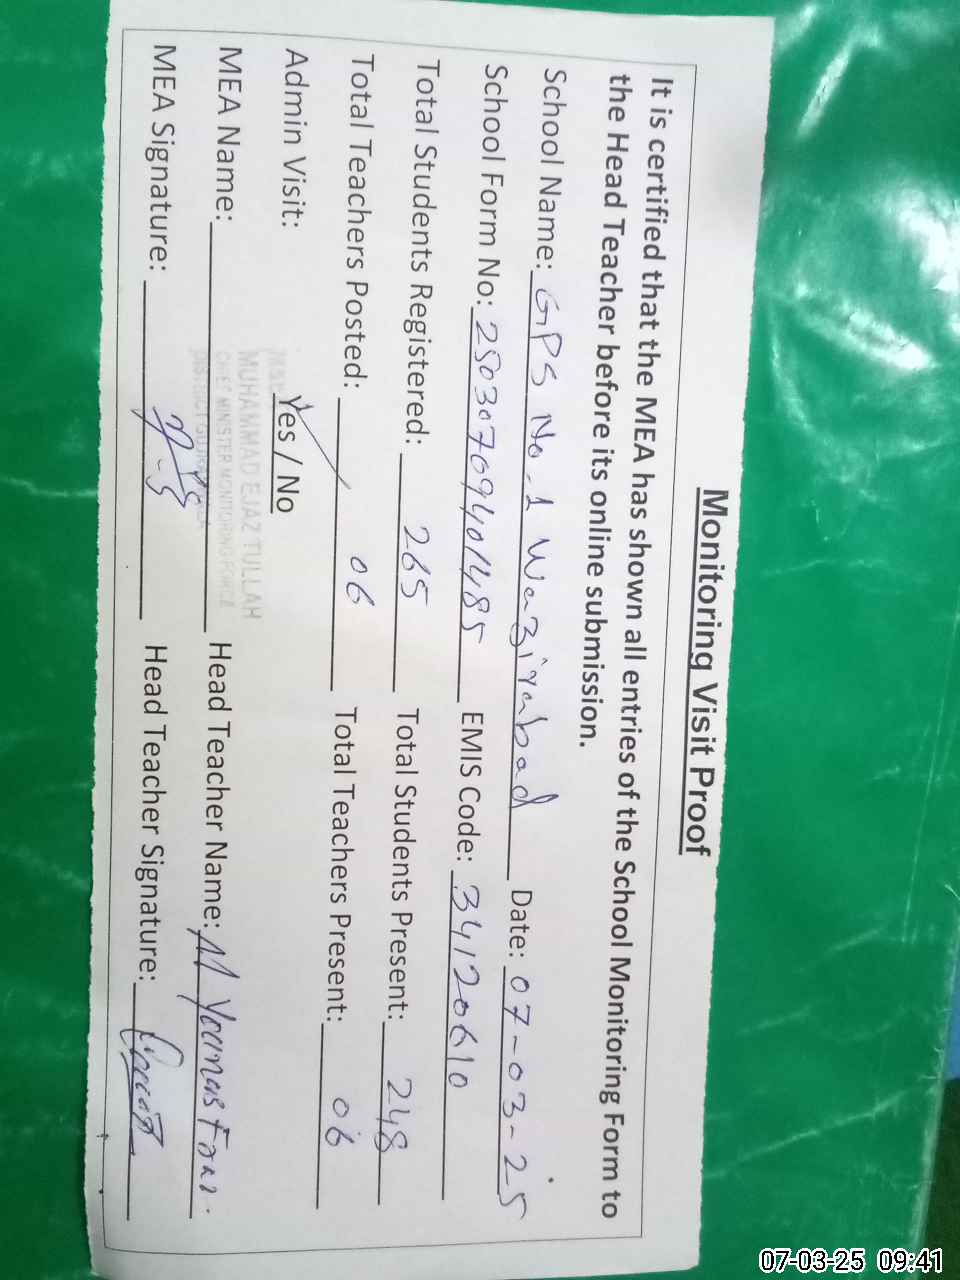 Monitoring Visit Proof
It is certified that the MEA has shown all entries of the School Monitoring Form to
the Head Teacher before its online submission.
School Name: GPS No.1 Wazirabad Date: 07-03-25
School Form No: 25030709401485 EMIS Code: 34120610
Total Students Registered: 265 Total Students Present: 248
Total Teachers Posted: 06 Total Teachers Present: 06
Admin Visit: Yes / No
MUHAMMAD EJAZ TULLAH
CHIEF MINISTER MONITORING FORCE
DISTRICT
MEA Name: Head Teacher Name: M Younas
MEA Signature: Head Teacher Signature:
07-03-25 09:41